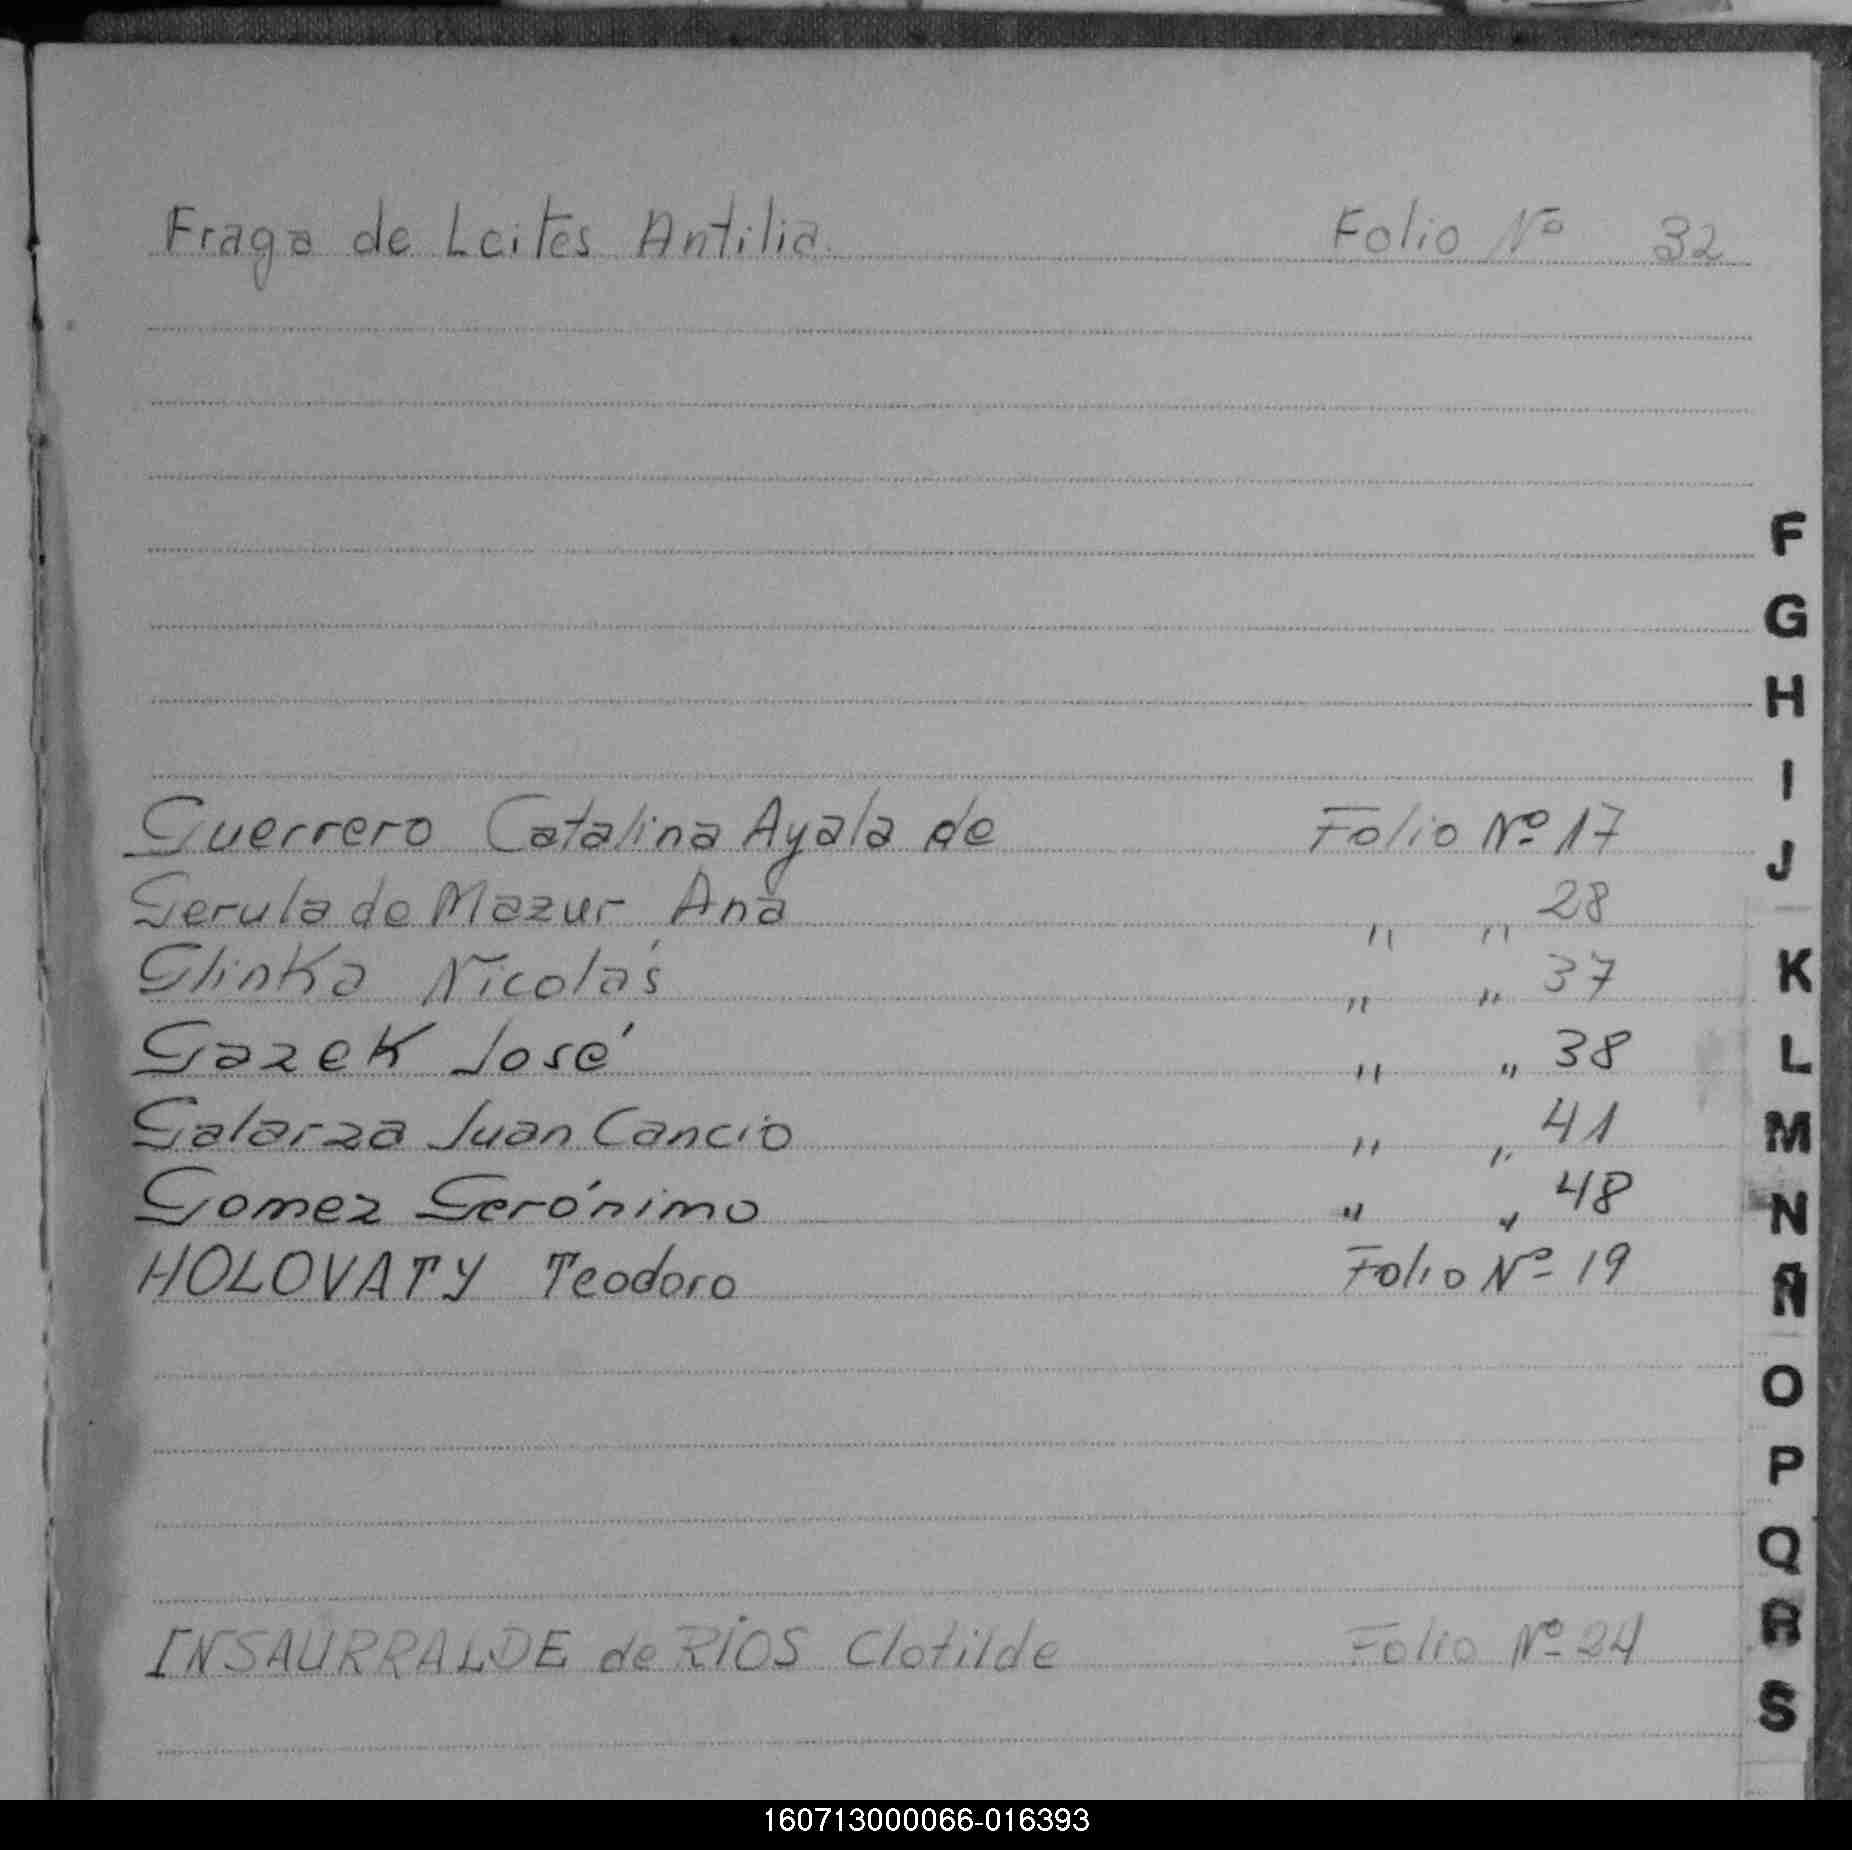 Fraga de Leites Antilia Folio Nº 32
Guerrero Catalina Ayala de Folio Nº 17
Gerula de Mazur Ana " " 28
Glinka Nicolás " " 37
Gazek José " " 38
Galarza Juan Cancio " " 41
Gomez Gerónimo " " 48
HOLOVATY Teodoro Folio Nº 19
INSAURRALDE de RÍOS Clotilde Folio Nº 24
F
G
H
I
J
K
L
M
N
Ñ
O
P
Q
R
S
160713000066-016393